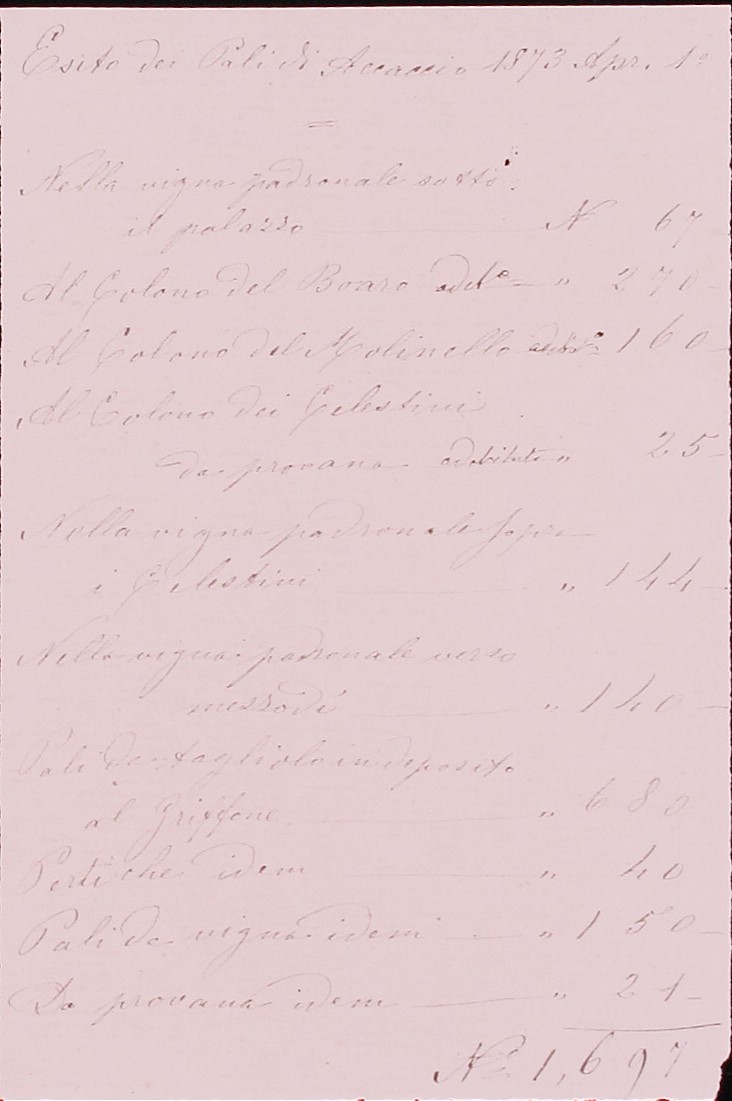 Esito dei Pali di Accaccio 1873 Apr. 1°
=
Nella vigna padronale sotto
il palazzo N 67
Al Colono del Boaro " 270
Al Colono del Molinello 160
Al Colono dei Celestini
da provana addebitati " 25
Nella vigna padronale sopra
i Celestini " 144
Nella vigna padronale verso
mezzodì " 140
Pali da tagliolo in deposito
al Griffone " 680
Pertiche idem " 40
Pali da vigna idem " 150
Da provana idem " 21
N° 1,697